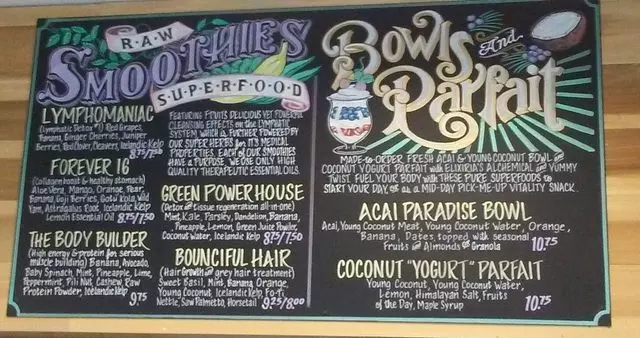 RAW
SMOOTHIES
SUPERFOOD
LYMPHOMANIAC
(Lymphatic Detox #1) Red Grapes,
Banana, Ginger, Cherries, Juniper
Berries, Red Clover, Cleavers, Icelandic Kelp
8.75/7.50
FOREVER 16
(Collagen boost & healthy stomach)
Aloe Vera, Mango, Orange, Pear,
Banana, Goji Berries, Gotu Kola, Wild
Yam, Astragalus Root, Icelandic Kelp
Lemon Essential Oil 8.75/7.50
THE BODY BUILDER
(High energy & protein for serious
muscle building) Banana, Avocado,
Baby Spinach, Mint, Pineapple, Lime,
Peppermint, Pili Nut, Cashew, Raw
Protein Powder, Icelandic Kelp
9.75
FEATURING FRUITS DELICIOUS YET POWERFUL
CLEANSING EFFECTS on the LYMPHATIC
SYSTEM WHICH is FURTHER POWERED BY
OUR SUPER HERBS for ITS MEDICAL
PROPERTIES. EACH of OUR SMOOTHIES
HAVE A PURPOSE. WE USE ONLY HIGH
QUALITY THERAPEUTIC ESSENTIAL OILS.
GREEN POWERHOUSE
(Detox and tissue regeneration all-in-one)
Mint, Kale, Parsley, Dandelion, Banana,
Pineapple, Lemon, Green Juice Powder,
Coconut Water, Icelandic Kelp 8.75/7.50
BOUNCIFUL HAIR
(Hair Growth and grey hair treatment)
Sweet Basil, Mint, Banana, Orange,
Young Coconut, Icelandic Kelp, Fo-Ti
Nettle, Saw Palmetto, Horsetail 9.25/8.00
Bowls And
Parfait
MADE-to-ORDER FRESH ACAI & YOUNG COCONUT BOWL and
COCONUT YOGURT PARFAIT with ELIXIRIA'S ALCHEMICAL and YUMMY
TWIST. FUEL YOUR BODY with THESE PURE SUPERFOODS to
START YOUR DAY, or as a MID-DAY PICK-ME-UP VITALITY SNACK.
ACAI PARADISE BOWL
Acai, Young Coconut Meat, Young Coconut Water, Orange,
Banana, Dates, topped with seasonal
Fruits and Almonds or Granola 10.75
COCONUT "YOGURT" PARFAIT
Young Coconut, Young Coconut Water,
Lemon, Himalayan Salt, Fruits
of the Day, Maple Syrup 10.75